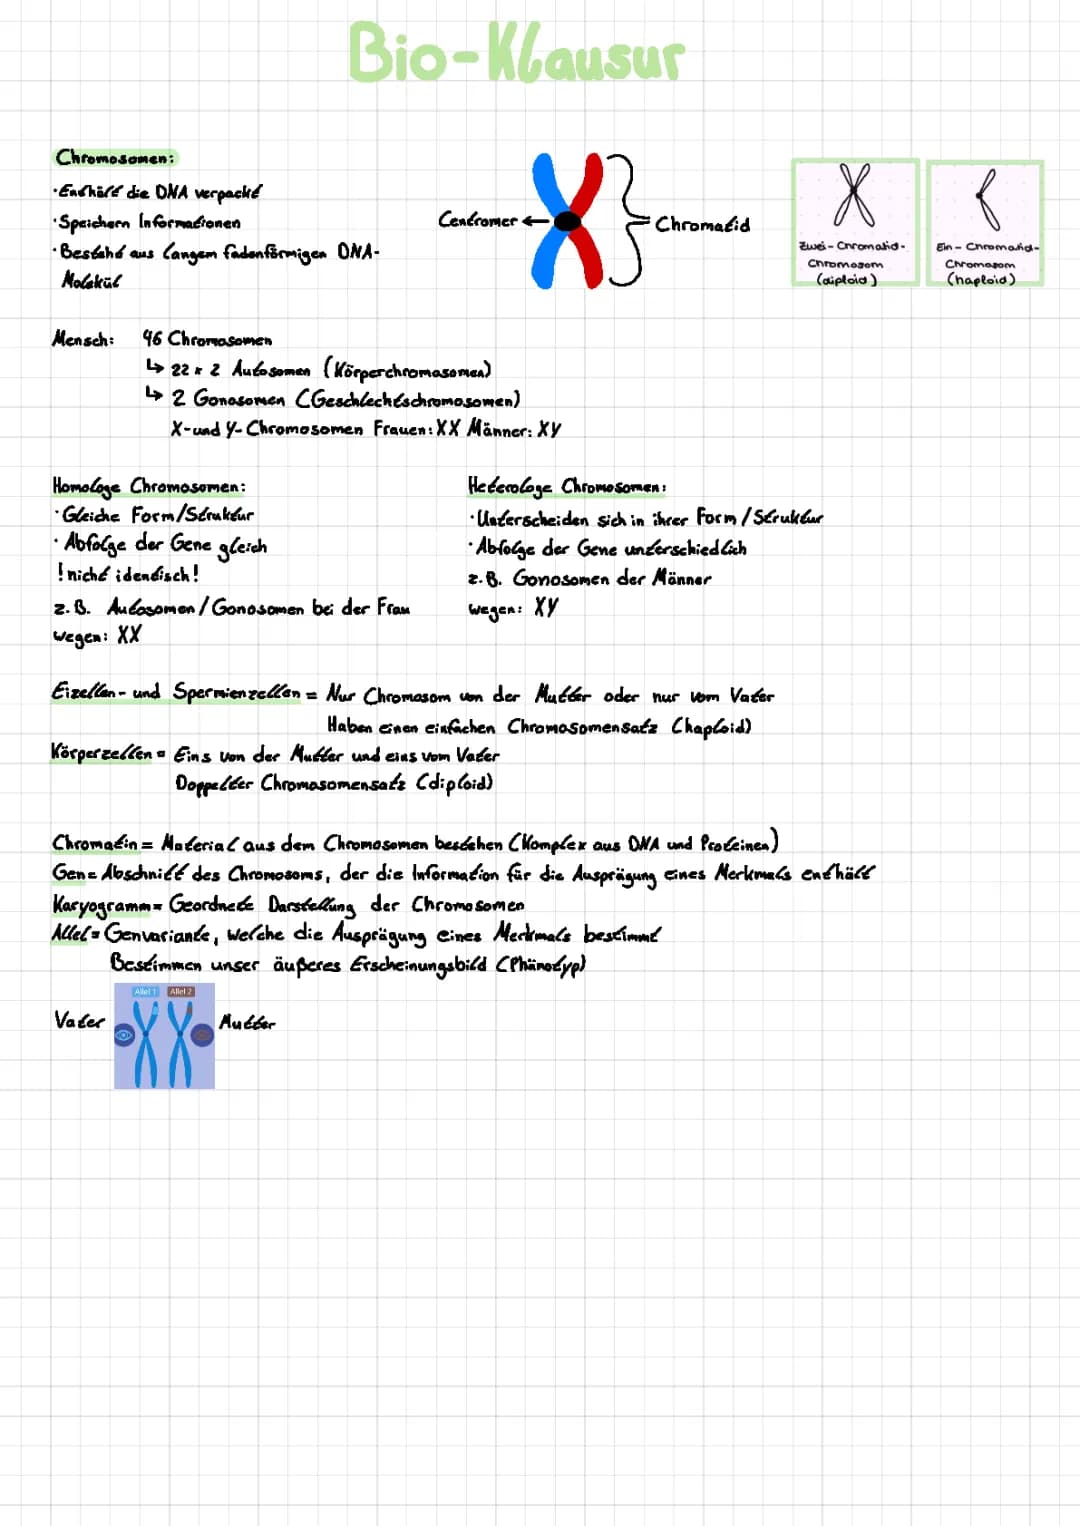 Bio-Klausur
Chromosomen:
·Enthält die DNA verpackt
·Speichern Informationen
·Besteht aus langem fadenförmigen DNA-
Molekül
Centromer
Chromatid
Zwei-Chromatid-
Chromosom
(diploid)
Ein-Chromatid-
Chromosom
(haploid)
Mensch: 46 Chromosomen
↳ 22 x 2 Autosomen (Körperchromosomen)
↳ 2 Gonosomen (Geschlechtschromosomen)
X-und Y-Chromosomen Frauen: XX Männer: XY
Homologe Chromosomen:
·Gleiche Form/Struktur
·Abfolge der Gene gleich
! nicht identisch!
z.B. Autosomen/Gonosomen bei der Frau
wegen: XX
Heterologe Chromosomen:
·Unterscheiden sich in ihrer Form/Struktur
·Abfolge der Gene unterschiedlich
z.B. Gonosomen der Männer
wegen: XY
Eizellen- und Spermienzellen = Nur Chromosom von der Mutter oder nur vom Vater
Haben einen einfachen Chromosomensatz (haploid)
Körperzellen = Eins von der Mutter und eins vom Vater
Doppelter Chromosomensatz (diploid)
Chromatin = Material aus dem Chromosomen bestehen (Komplex aus DNA und Proteinen)
Gen = Abschnitt des Chromosoms, der die Information für die Ausprägung eines Merkmals enthält
Karyogramm = Geordnete Darstellung der Chromosomen
Allel = Genvariante, welche die Ausprägung eines Merkmals bestimmt
Bestimmen unser äußeres Erscheinungsbild (Phänotyp)
Allel 1 Allel 2
Vater Mutter